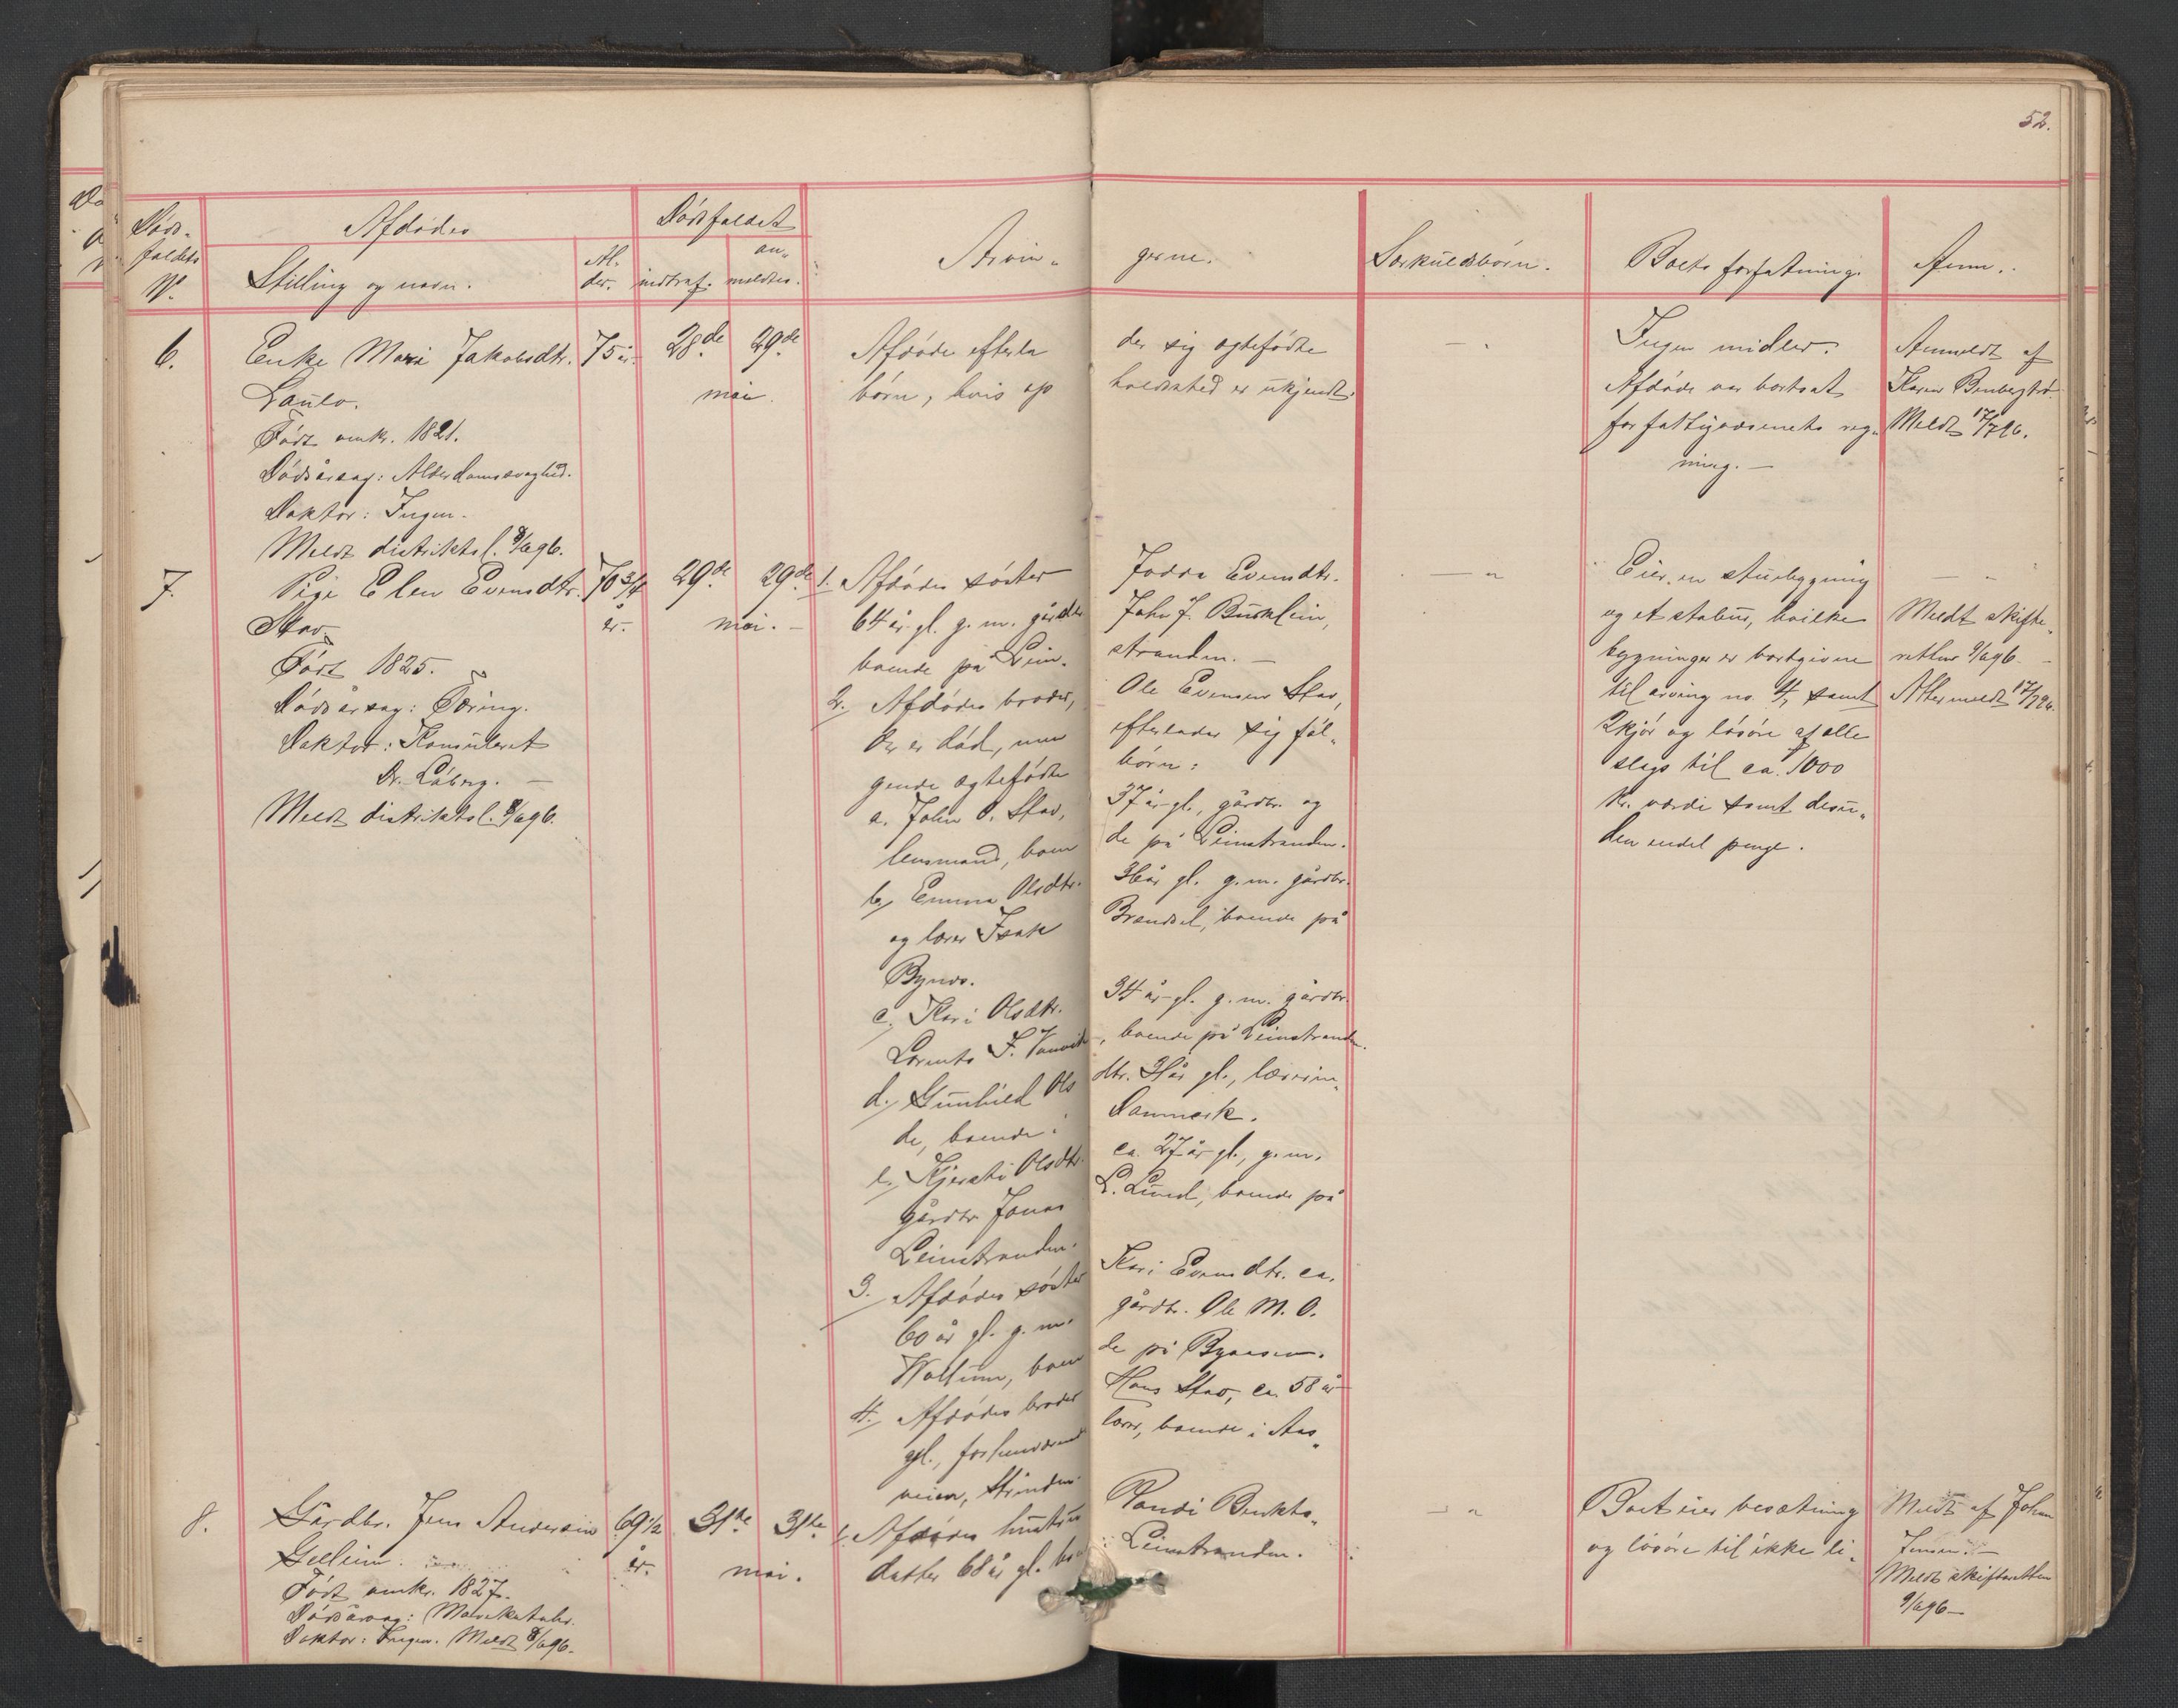 52.
Døds-
faldets
No.
Afdødes
Stilling og navn.
Al-
der.
Dødsfaldet
indtraf.
an-
meldtes.
Arvin-
gerne.
Særkuldsbørn.
Boets forfatning.
Anm.
6.
Enke Mari Jakobsdtr.
Laulo.
Født omkr. 1821.
Dødsårsag: Alderdomssvaghed.
Doktor: Ingen.
Meldt distriktsl. 8/6 96.
75 år.
28de
29de
mai.
Afdøde efterla
der sig ægtefødte
børn, hvis op
holdssted er ukjendt.
— "
Ingen midler.
Afdøde var bortsat
for fattigvæsenets reg-
ning. —
Anmeldt af
Karen
Meldt 17/7 96.
7.
Pige Elen Evensdtr.
Stav.
Født 1825.
Dødsårsag: Tæring.
Doktor: Konsuleret
Dr. Låberg. —
Meldt distriktsl. 8/6 96.
70 3/4
år.
29de
29de
mai. —
1. Afdødes søster
Jodda Evensdtr.
64 år gl. g. m. gårdbr
John J. Busklein,
boende på Lein-
stranden. —
2. Afdødes broder,
Ole Evensen Stav,
der er død, men
efterlader sig føl-
gende ægtefødte
børn:
a. John O. Stav,
37 år gl., gårdbr. og
lensmand, boen
de på Leinstranden.
b. Emma Olsdtr.
36 år gl. g. m. gårdbr.
og lærer Isak
Brændsel, boende på
Bynes.
c. Kari Olsdtr.
34 år gl. g. m. gårdbr.
Lorents F.
, boende på Leinstranden.
d. Gunhild Ols
dtr. 31 år gl., lærerin-
de, boende i
Danmark.
e. Kjersti Olsdtr.
ca. 27 år gl., g. m.
gårdbr. Jonas
L. Lund, boende på
Leinstranden.
3. Afdødes søster
Kari Evensdtr. ca.
60 år gl. g. m.
gårdbr. Ole M. O.
Wollum, boen
de på Byneset.
4. Afdødes broder
Hans Stav, ca. 58 år
gl., forhenværende
lærer, boende i Aas-
veien, Strinden.
— "
Eier en stuebygning
og et stabur, hvilke
bygninger er bortgivne
til arving no. 4, samt
2 kjør og løsøre af alle
slags til ca. 1000
Kr. værdi samt desu-
den endel penge.
— "
Meldt skifte-
retten 9/6 96. —
Atter meldt 17/7 96.
8.
Gårdbr. Jens Andersen
Gellein.
Født omkr. 1827.
Dødsårsag: Mavekatahr.
Doktor: Ingen. Meldt 8/6 96.
69 1/2
år.
31te
31te
mai.
1. Afdødes hustru
Randi Benkts-
datter 68 år gl. bo
Leinstranden.
— "
Boet eier besætning
og løsøre til ikke li-
Meldt af Johan
Jensen. —
Meldt skifteretten
9/6 96 —